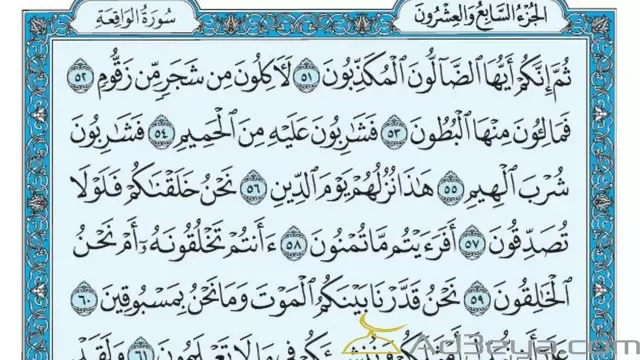 الجُزْءُ السَّابِعُ وَالعِشْرُونَ
سُورَةُ الوَاقِعَةِ
ثُمَّ إِنَّكُمْ أَيُّهَا الضَّآلُّونَ الْمُكَذِّبُونَ ٥١ لَآكِلُونَ مِن شَجَرٍ مِّن زَقُّومٍ ٥٢
فَمَالِئُونَ مِنْهَا الْبُطُونَ ٥٣ فَشَارِبُونَ عَلَيْهِ مِنَ الْحَمِيمِ ٥٤ فَشَارِبُونَ
شُرْبَ الْهِيمِ ٥٥ هَذَا نُزُلُهُمْ يَوْمَ الدِّينِ ٥٦ نَحْنُ خَلَقْنَاكُمْ فَلَوْلَا
تُصَدِّقُونَ ٥٧ أَفَرَءَيْتُم مَّا تُمْنُونَ ٥٨ ءَأَنتُمْ تَخْلُقُونَهُ أَمْ نَحْنُ
الْخَالِقُونَ ٥٩ نَحْنُ قَدَّرْنَا بَيْنَكُمُ الْمَوْتَ وَمَا نَحْنُ بِمَسْبُوقِينَ ٦٠
وَنُنشِئَكُمْ فِي مَا لَا تَعْلَمُونَ ٦١ وَلَقَدْ
Ad3eya.com